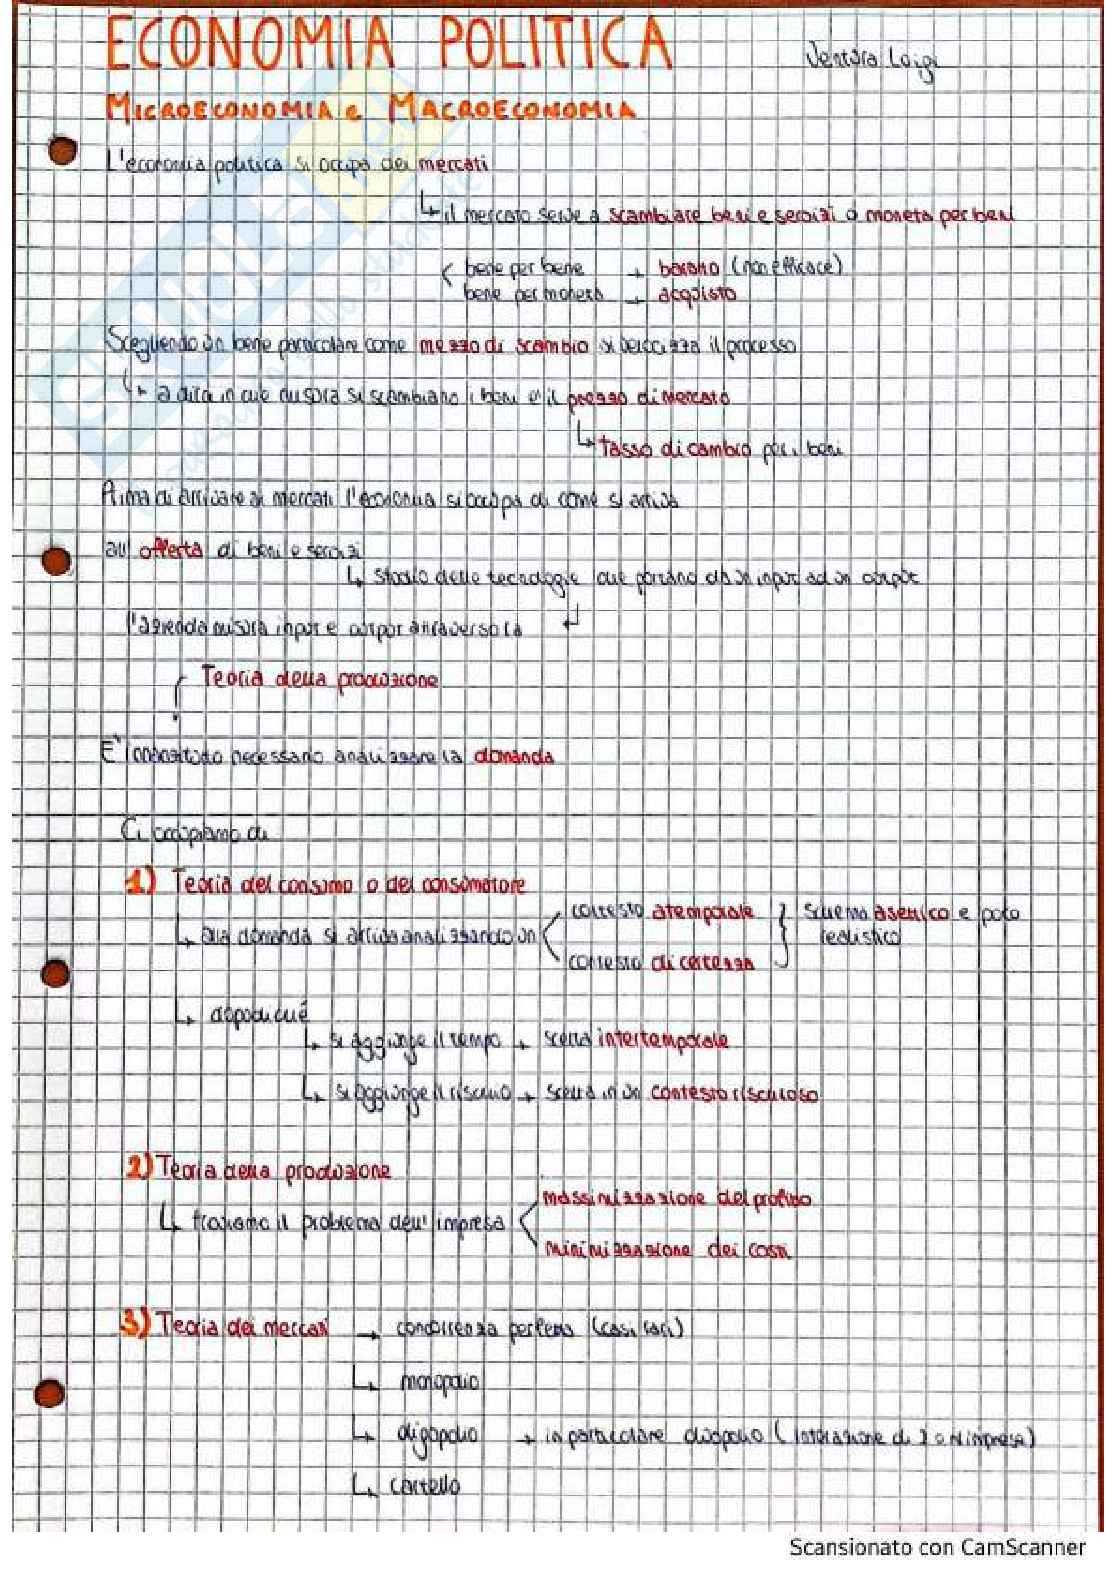 ECONOMIA POLITICA
Ventura Luigi
MICROECONOMIA e MACROECONOMIA
L'economia politica si occupa dei mercati
↳ il mercato serve a scambiare beni e servizi o moneta per beni
bene per bene → baratto (non efficace)
bene per moneta → acquisto
Scegliendo un bene particolare come mezzo di scambio si velocizza il processo
↳ a dirci in che misura si scambiano i beni e' il prezzo di mercato
↳ tasso di cambio per i beni
Prima di arrivare ai mercati l'economia si occupa di come si arriva
all'offerta di beni e servizi
↳ studio delle tecnologie che portano da un input ad un output
l'azienda misura input e output attraverso la
Teoria della produzione
E' innanzitutto necessario analizzare la domanda
Ci occupiamo di
1) Teoria del consumo o del consumatore
↳ alla domanda si arriva analizzando un
contesto atemporale
contesto di certezza
schema asettico e poco
realistico
↳ dopodiché
↳ si aggiunge il tempo → scelta intertemporale
↳ si aggiunge il rischio → scelta in un contesto rischioso
2) Teoria della produzione
↳ troviamo il problema dell'impresa
massimizzazione del profitto
minimizzazione dei costi
3) Teoria dei mercati → concorrenza perfetta (casi rari)
↳ monopolio
↳ oligopolio → in particolare duopolio (interazione di 2 o N imprese)
↳ cartello
Scansionato con CamScanner